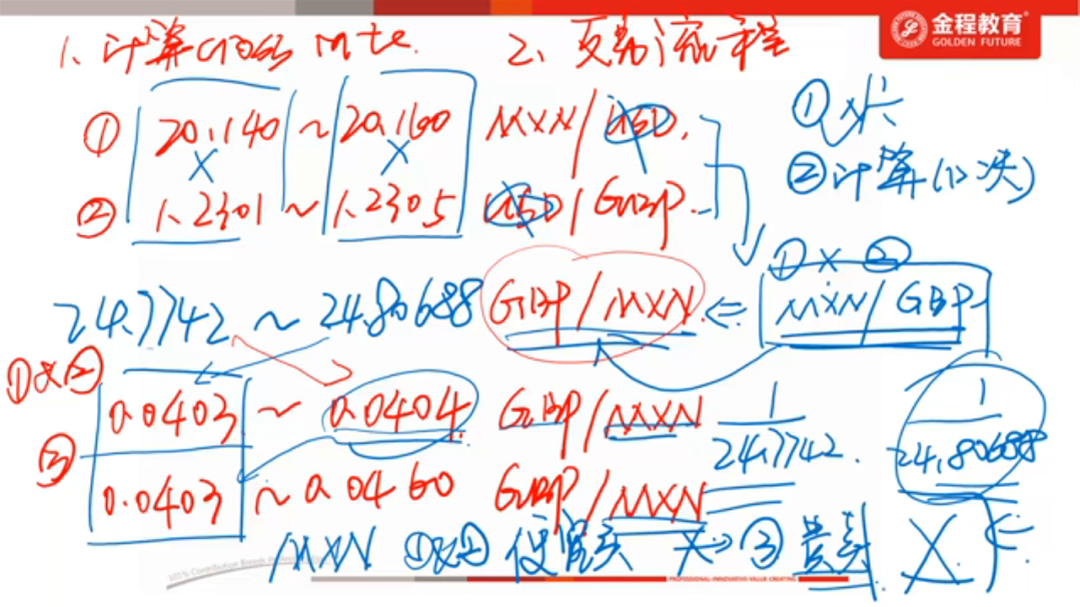 金程教育®
GOLDEN FUTURE
1、计算cross rate. 2、交易流程
① 20.140 ~ 20.160 MXN/USD.
② 1.2301 ~ 1.2305 USD/GBP.
①
②计算(12次)
① × ②
24.7742 ~ 24.80688 GBP/MXN. ⇐ MXN/GBP
①×②
0.0403 ~ 0.0404 GBP/MXN
1/24.7742. 1/24.80688
③
0.0403 ~ 0.0460 GBP/MXN
MXN ①×② 便宜买 ③ 贵卖
101% Contribution Breeds Professionalism
PROFESSIONAL·INNOVATIVE·VALUE CREATING